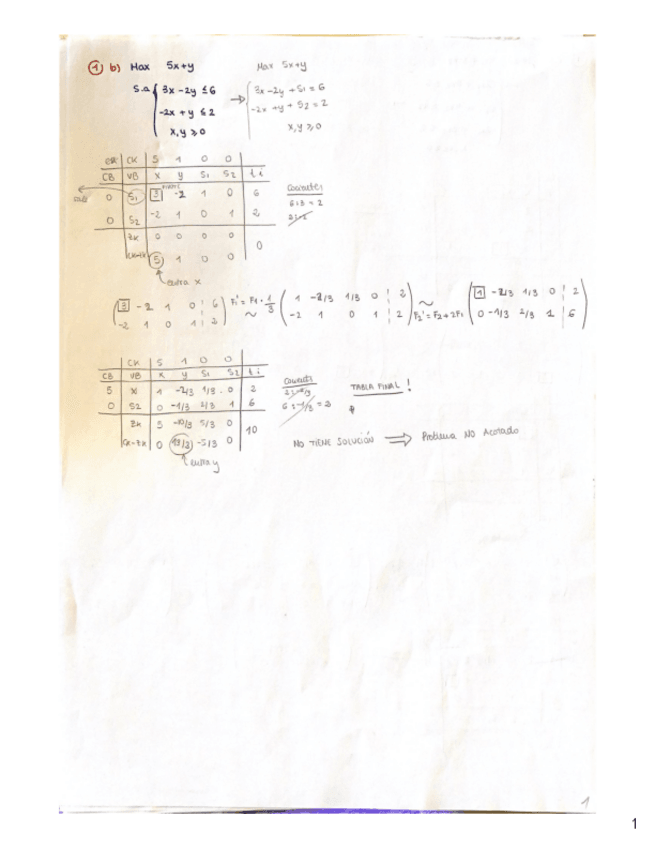 1 b) Max 5x+y
s.a { 3x - 2y ≤ 6
-2x + y ≤ 2
x, y ≥ 0
→
Max 5x+y
{ 3x - 2y + S1 = 6
-2x + y + S2 = 2
x, y ≥ 0
CK 5 1 0 0
CB VB x y S1 S2 ti
0 S1 3 -2 1 0 6
0 S2 -2 1 0 1 2
ZK 0 0 0 0 0
CK-ZK 5 1 0 0
PIVOTE
sale
entra x
Cocientes
6:3 = 2
2:-2
( 3 -2 1 0 | 6
-2 1 0 1 | 2 )
F1' = F1 · 1/3
~
( 1 -2/3 1/3 0 | 2
-2 1 0 1 | 2 )
~
F2' = F2 + 2F1
( 1 -2/3 1/3 0 | 2
0 -1/3 2/3 1 | 6 )
CK 5 1 0 0
CB VB x y S1 S2 ti
5 x 1 -2/3 1/3 0 2
0 S2 0 -1/3 2/3 1 6
ZK 5 -10/3 5/3 0 10
CK-ZK 0 13/3 -5/3 0
entra y
Cocients
2:-2/3
6:-1/3
TABLA FINAL!
NO TIENE SOLUCIÓN ⟹ Problema NO Acotado
1
1